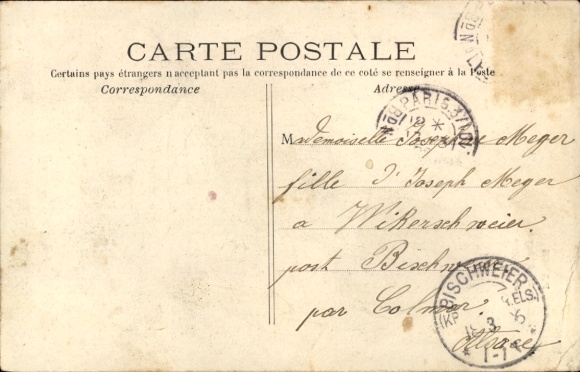 CARTE POSTALE
Certains pays étrangers n'acceptant pas la correspondance de ce coté se renseigner à la Poste
Correspondance
Adresse
PARIS
Mademoiselle Josephine Meyer
fille d'Joseph Meyer
a Wikerschweier
post Bischweier
par Colmar
Alsace
BISCHWEIER